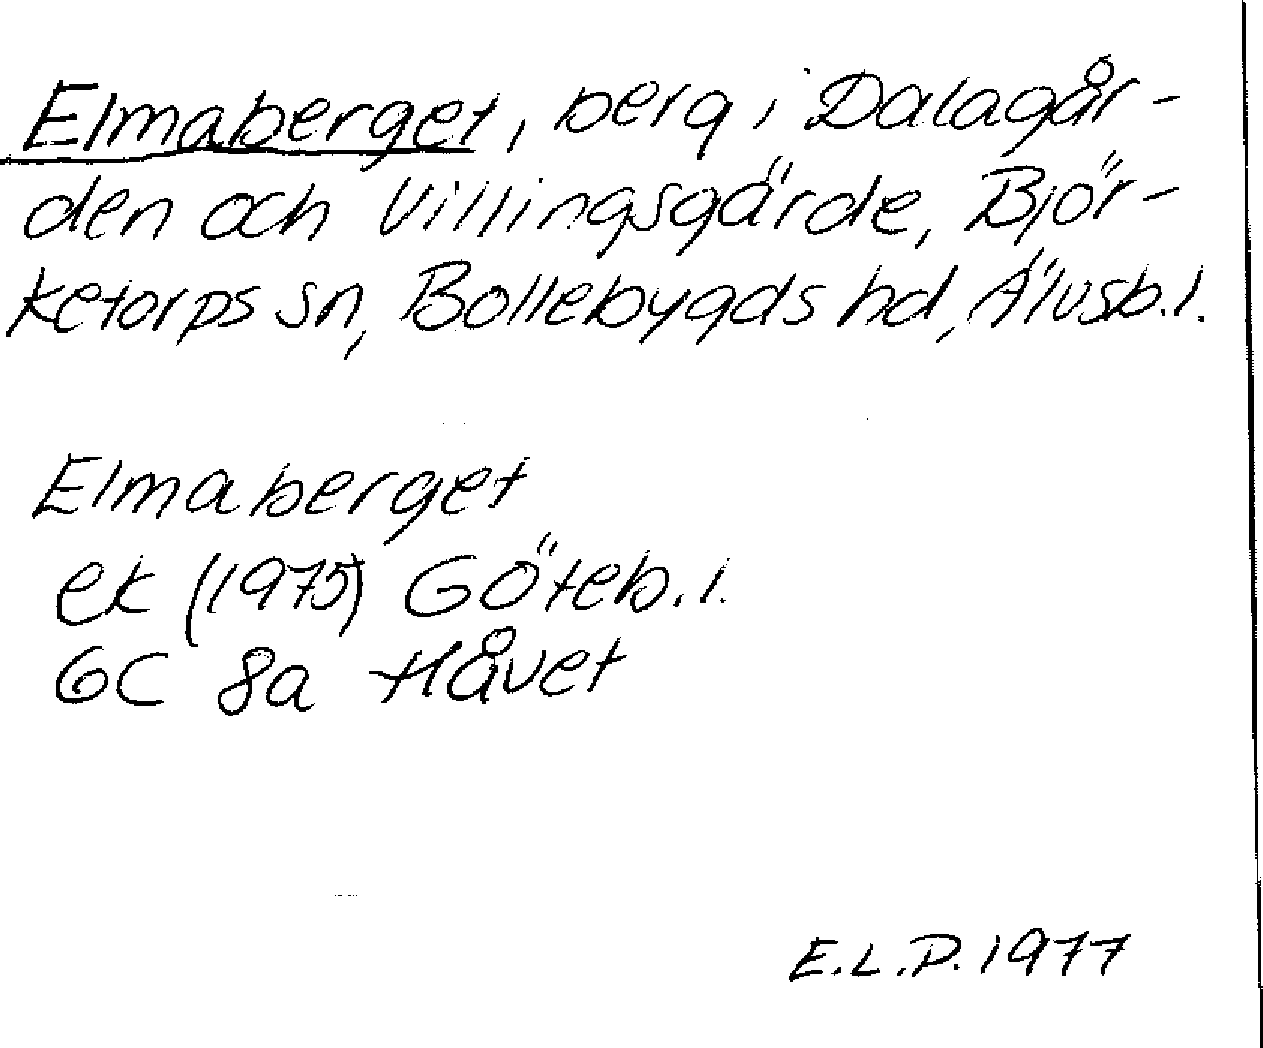 Elmaberget, berg i Dalagår-
den och Villingsgärde, Björ-
ketorps sn, Bollebygds hd, Älvsb. l.
Elmaberget
ek (1975) Göteb. l.
6C 8a Håvet
E.L.P. 1977